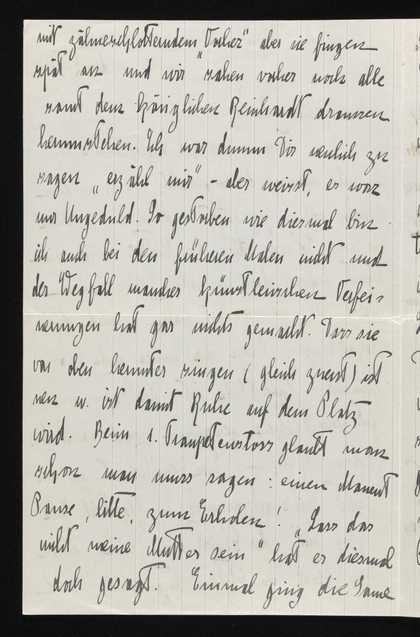 mit zähneschlotterndem "Vorher" aber sie fingen
spät an und wir sahen vorher noch alle
samt dem königlichen Reinhardt draussen
herumstehen. Ich war dumm Dir neulich zu
sagen "erzähl mir" - aber weisst, es war
nur Ungeduld. So gestorben wie diesmal bin
ich auch bei den früheren Malen nicht und
der Wegfall mancher künstlerischen Verfei-
nerungen hat gar nichts gemacht. Dass sie
von oben herunter singen (gleich zuerst) ist
neu u. ist damit Ruhe auf dem Platz
wird. Beim 1. Trompetenstoss glaubt man
schon man muss sagen: einen Moment
Pause, bitte, zum Erholen! "Lass das
nicht meine Mutter sein" hat er diesmal
doch gesagt. Einmal ging die Sonne